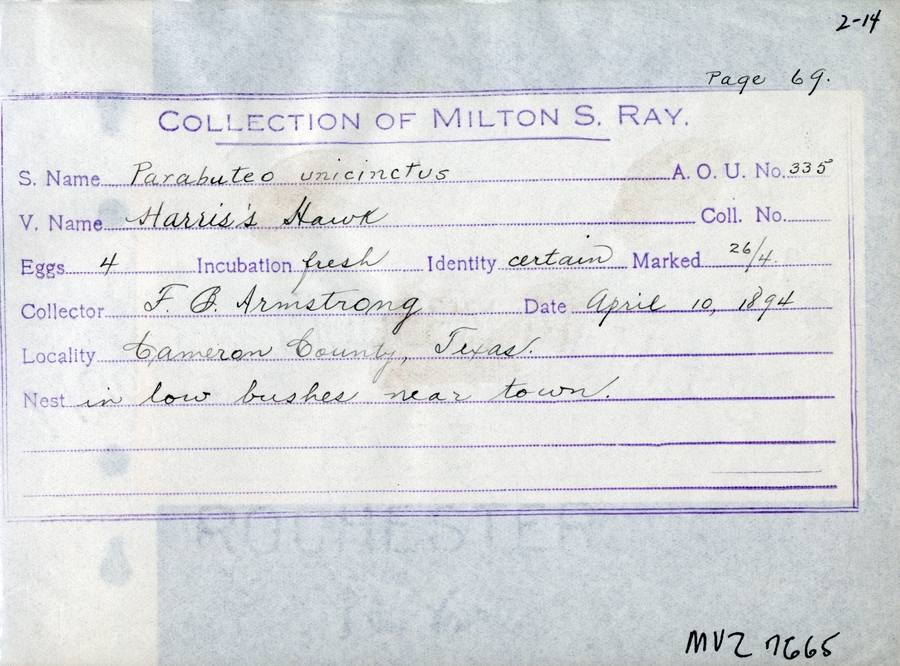 2-14
Page 69.
COLLECTION OF MILTON S. RAY.
S. Name Parabuteo unicinctus A. O. U. No. 335
V. Name Harris's Hawk Coll. No.
Eggs 4 Incubation fresh Identity certain Marked 26/4.
Collector F. B. Armstrong Date April 10, 1894
Locality Cameron County, Texas.
Nest in low bushes near town.
ROCHESTER
MVZ 7665